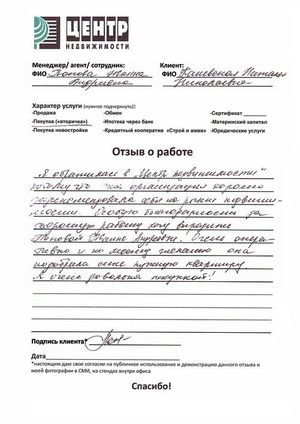 ЦЕНТР
НЕДВИЖИМОСТИ
Менеджер/ агент/ сотрудник: Клиент:
ФИО Попова Жанна ФИО Наталья
Андреевна Николаевна
Характер услуги (нужное подчеркнуть):
-Продажа -Обмен -Сертификат
-Покупка (вторичка) -Ипотека через банк -Материнский капитал
-Покупка новостройки -Кредитный кооператив «Строй и живи» -Юридические услуги
Отзыв о работе
Я обратилась в "Центр недвижимости"
потому что эта организация хорошо
зарекомендовала себя на рынке недвижи-
мости. Особую благодарность за
хорошую работу хочу выразить
Поповой Жанне Андреевне! Очень опера-
тивно и по моему желанию она
подобрала мне нужную квартиру.
Я очень довольна покупкой!
Подпись клиента*
Дата
*настоящим даю свое согласие на публичное использование и демонстрацию данного отзыва и
моей фотографии в СМИ, на стендах внутри офиса
Спасибо!